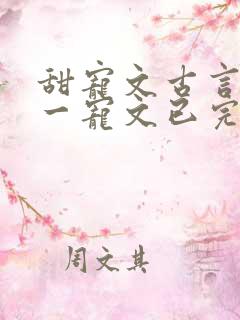 甜宠文古言
一宠文已完
周文其